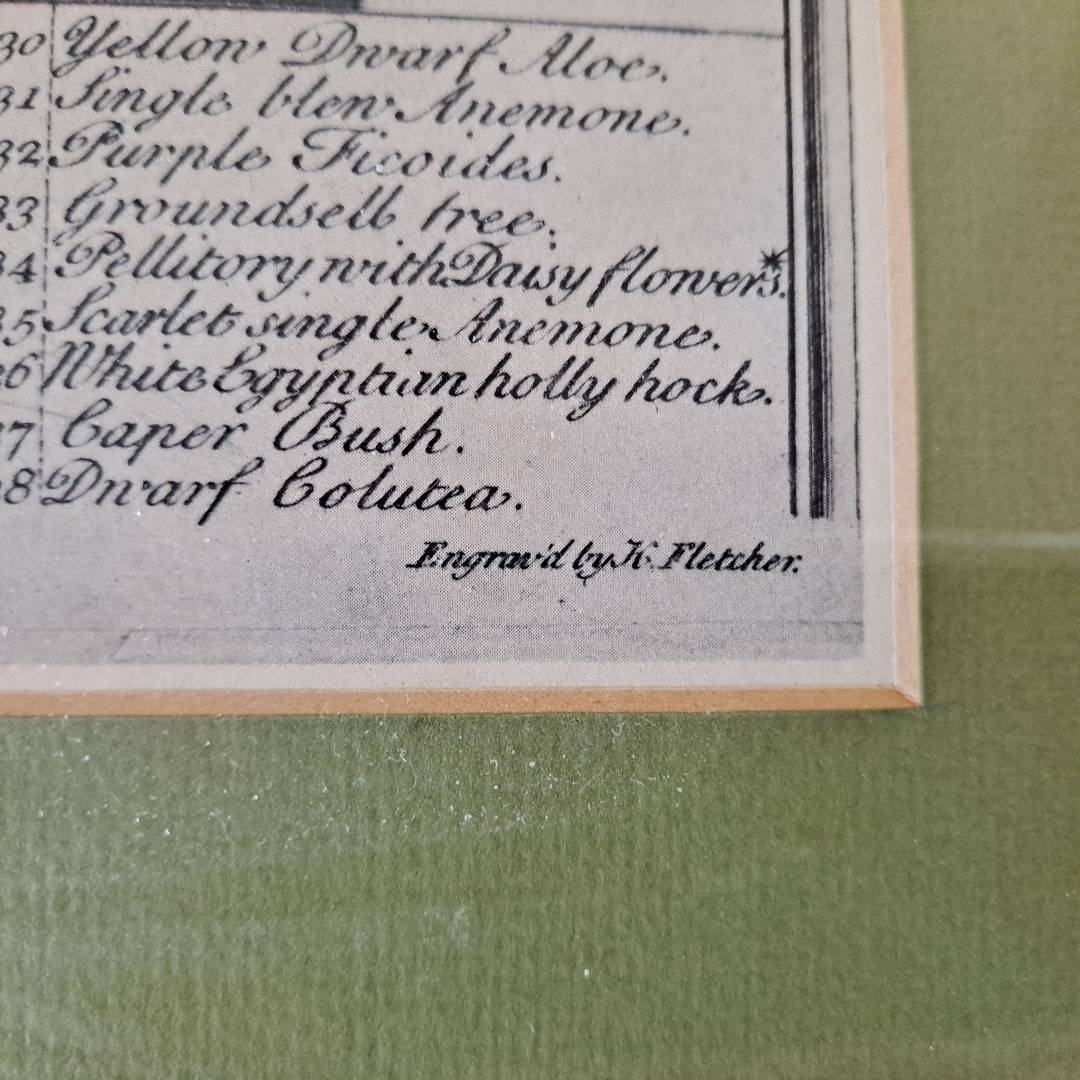 30 Yellow Dwarf Aloe.
31 Single blew Anemone.
32 Purple Ficoides.
33 Groundsell tree.
34 Pellitory with Daisy flowers.*
35 Scarlet single Anemone.
36 White Egyptian holly hock.
37 Caper Bush.
38 Dwarf Colutea.
Engrav'd by H. Fletcher.